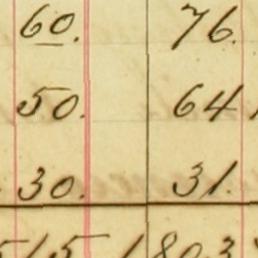 60. 76.
50. 64
30. 31.
515 1803